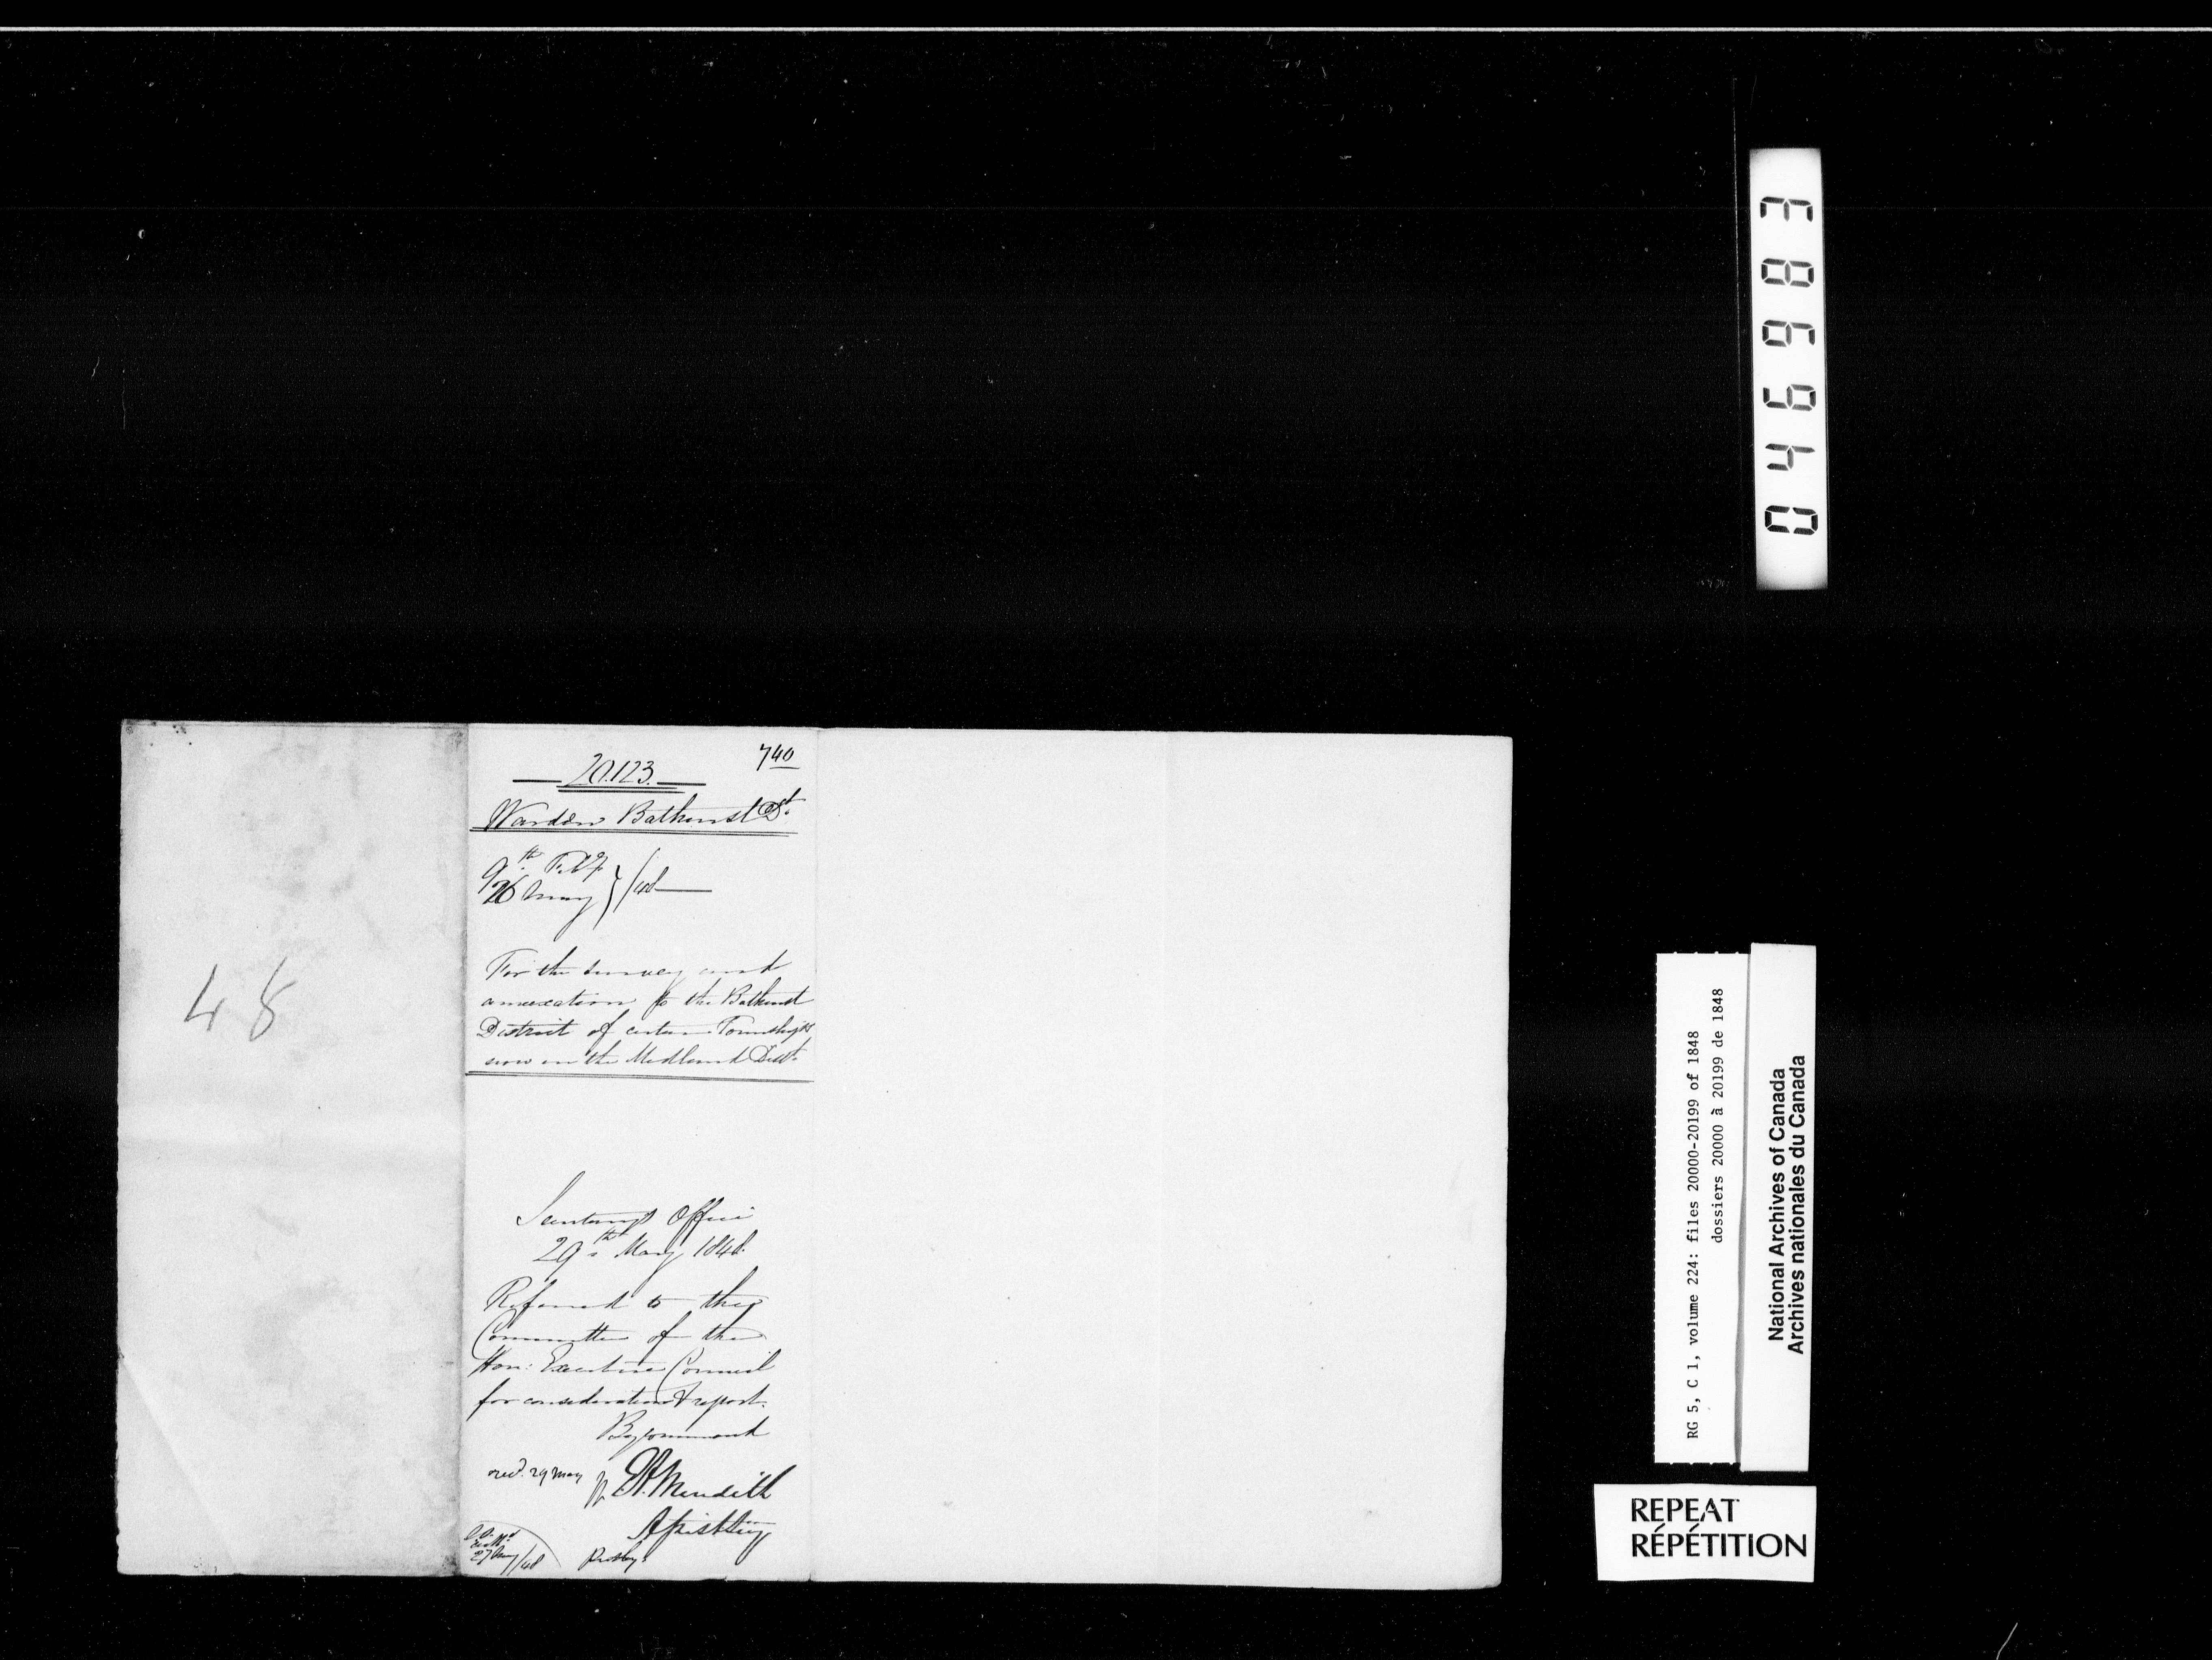 740
20.123.
Warden Bathurst Dt.
9th Feby
26 May } /48
For the survey and
annexation to the Bathurst
District of certain Townships
now in the Midland Distt.
Secretary's Office
29th May 1848.
Referred to the
Committee of the
Hon: Executive Council
for consideration & report.
By command
recd. 29 May
E A Meredith
Asist Secy
27 May/48
48
046983
RG 5, C 1, volume 224: files 20000-20199 of 1848
dossiers 20000 à 20199 de 1848
National Archives of Canada
Archives nationales du Canada
REPEAT
RÉPÉTITION